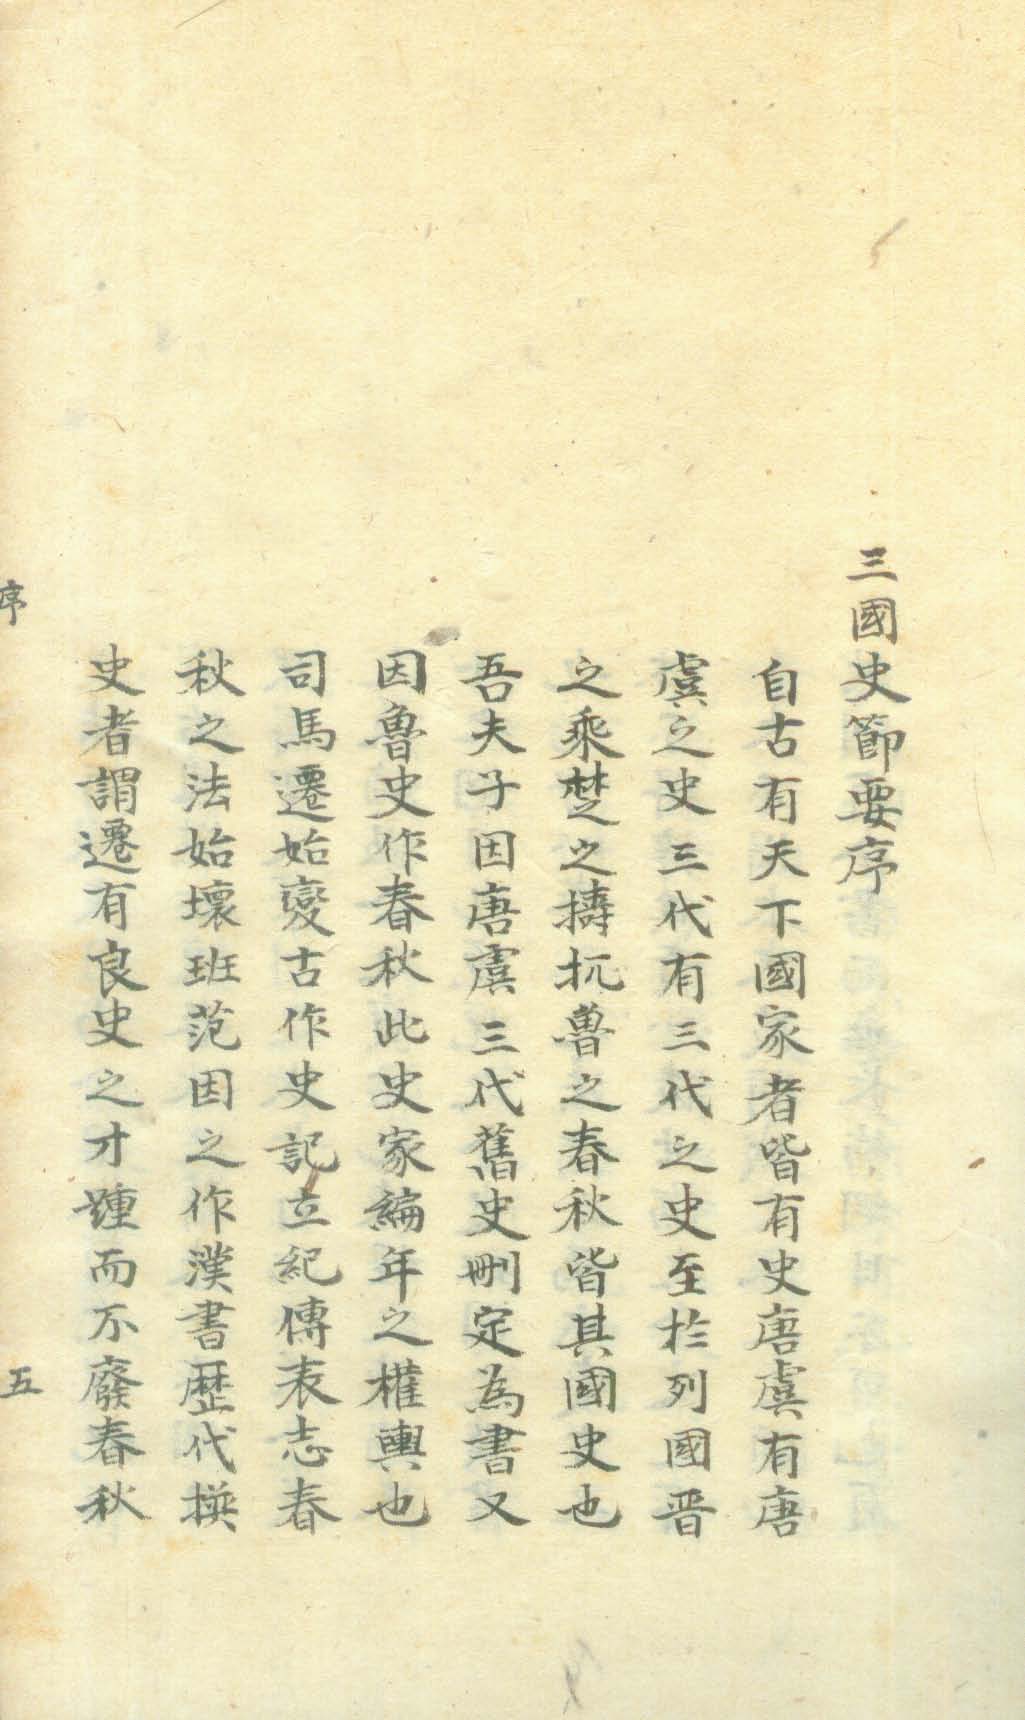 三國史節要序
自古有天下國家者皆有史唐虞有唐
虞之史三代有三代之史至於列國晋
之乘楚之擣杌魯之春秋皆其國史也
吾夫子因唐虞三代舊史刪定為書又
因魯史作春秋此史家編年之權輿也
司馬遷始變古作史記立紀傳表志春
秋之法始壞班范因之作漢書歷代撰
史者謂遷有良史之才踵而不廢春秋
序
五